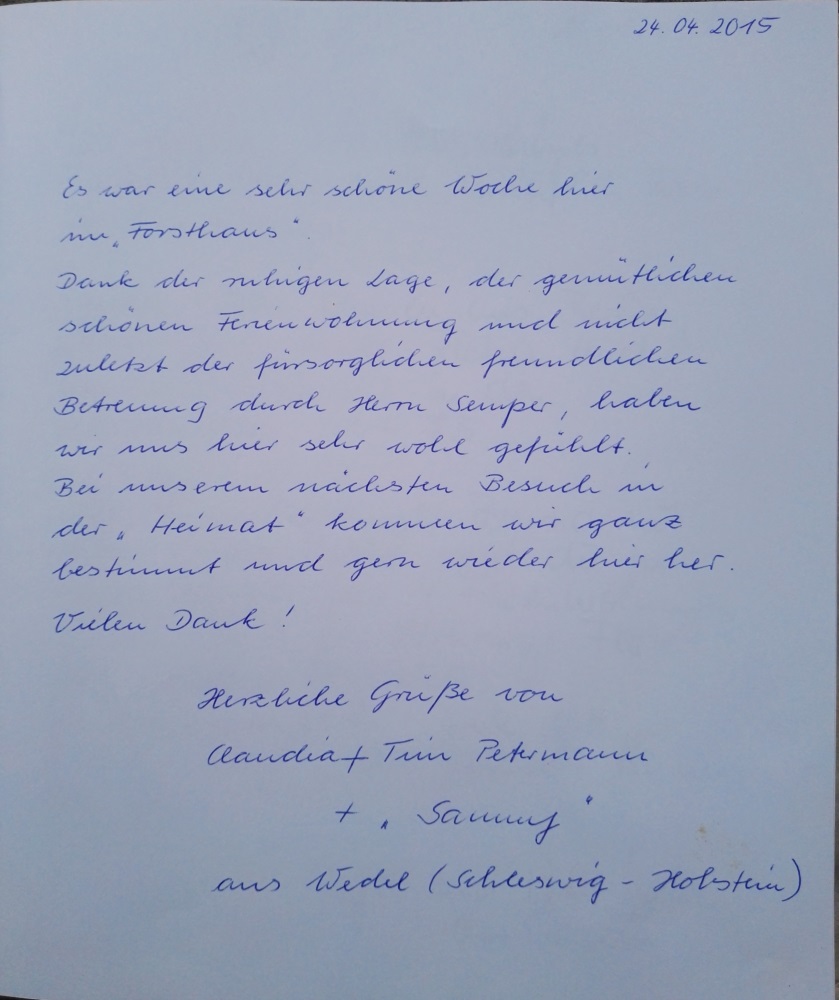 24.04.2015
Es war eine sehr schöne Woche hier
im „Forsthaus“.
Dank der ruhigen Lage, der gemütlichen
schönen Ferienwohnung und nicht
zuletzt der fürsorglichen freundlichen
Betreuung durch Herrn Semper, haben
wir uns hier sehr wohl gefühlt.
Bei unserem nächsten Besuch in
der „Heimat“ kommen wir ganz
bestimmt und gern wieder hier her.
Vielen Dank!
Herzliche Grüße von
Claudia + Tim Petermann
+ „Sammy“
aus Wedel (Schleswig-Holstein)